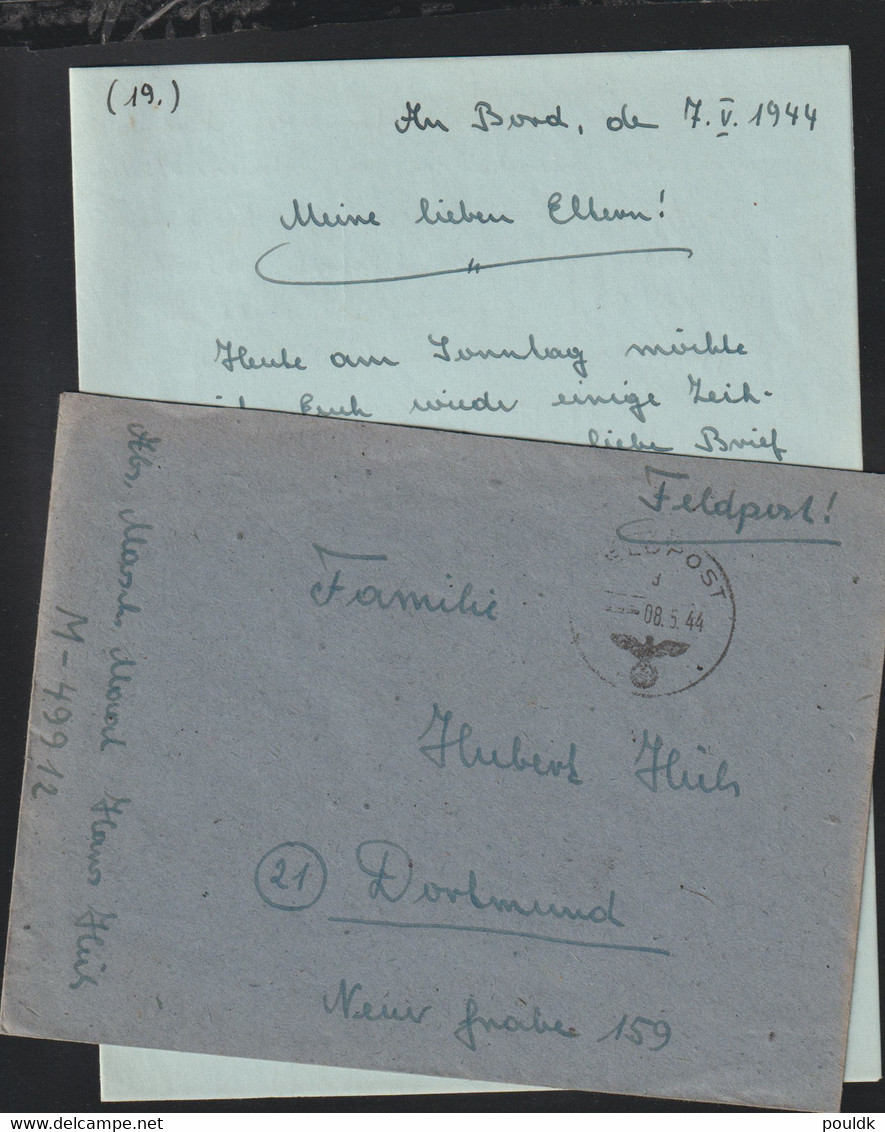 (19.)
An Bord, den 7. V. 1944
Meine lieben Eltern!
Heute am Sonntag möchte
ich Euch wieder einige Zeich-
liebe Brief
Feldpost!
FELDPOST
d
-08.5.44
Familie
Hubert
21 Dortmund
Neuer Graben 159
Abs. Masch. Maat Hans
M-49912
www.delcampe.net
pouldk